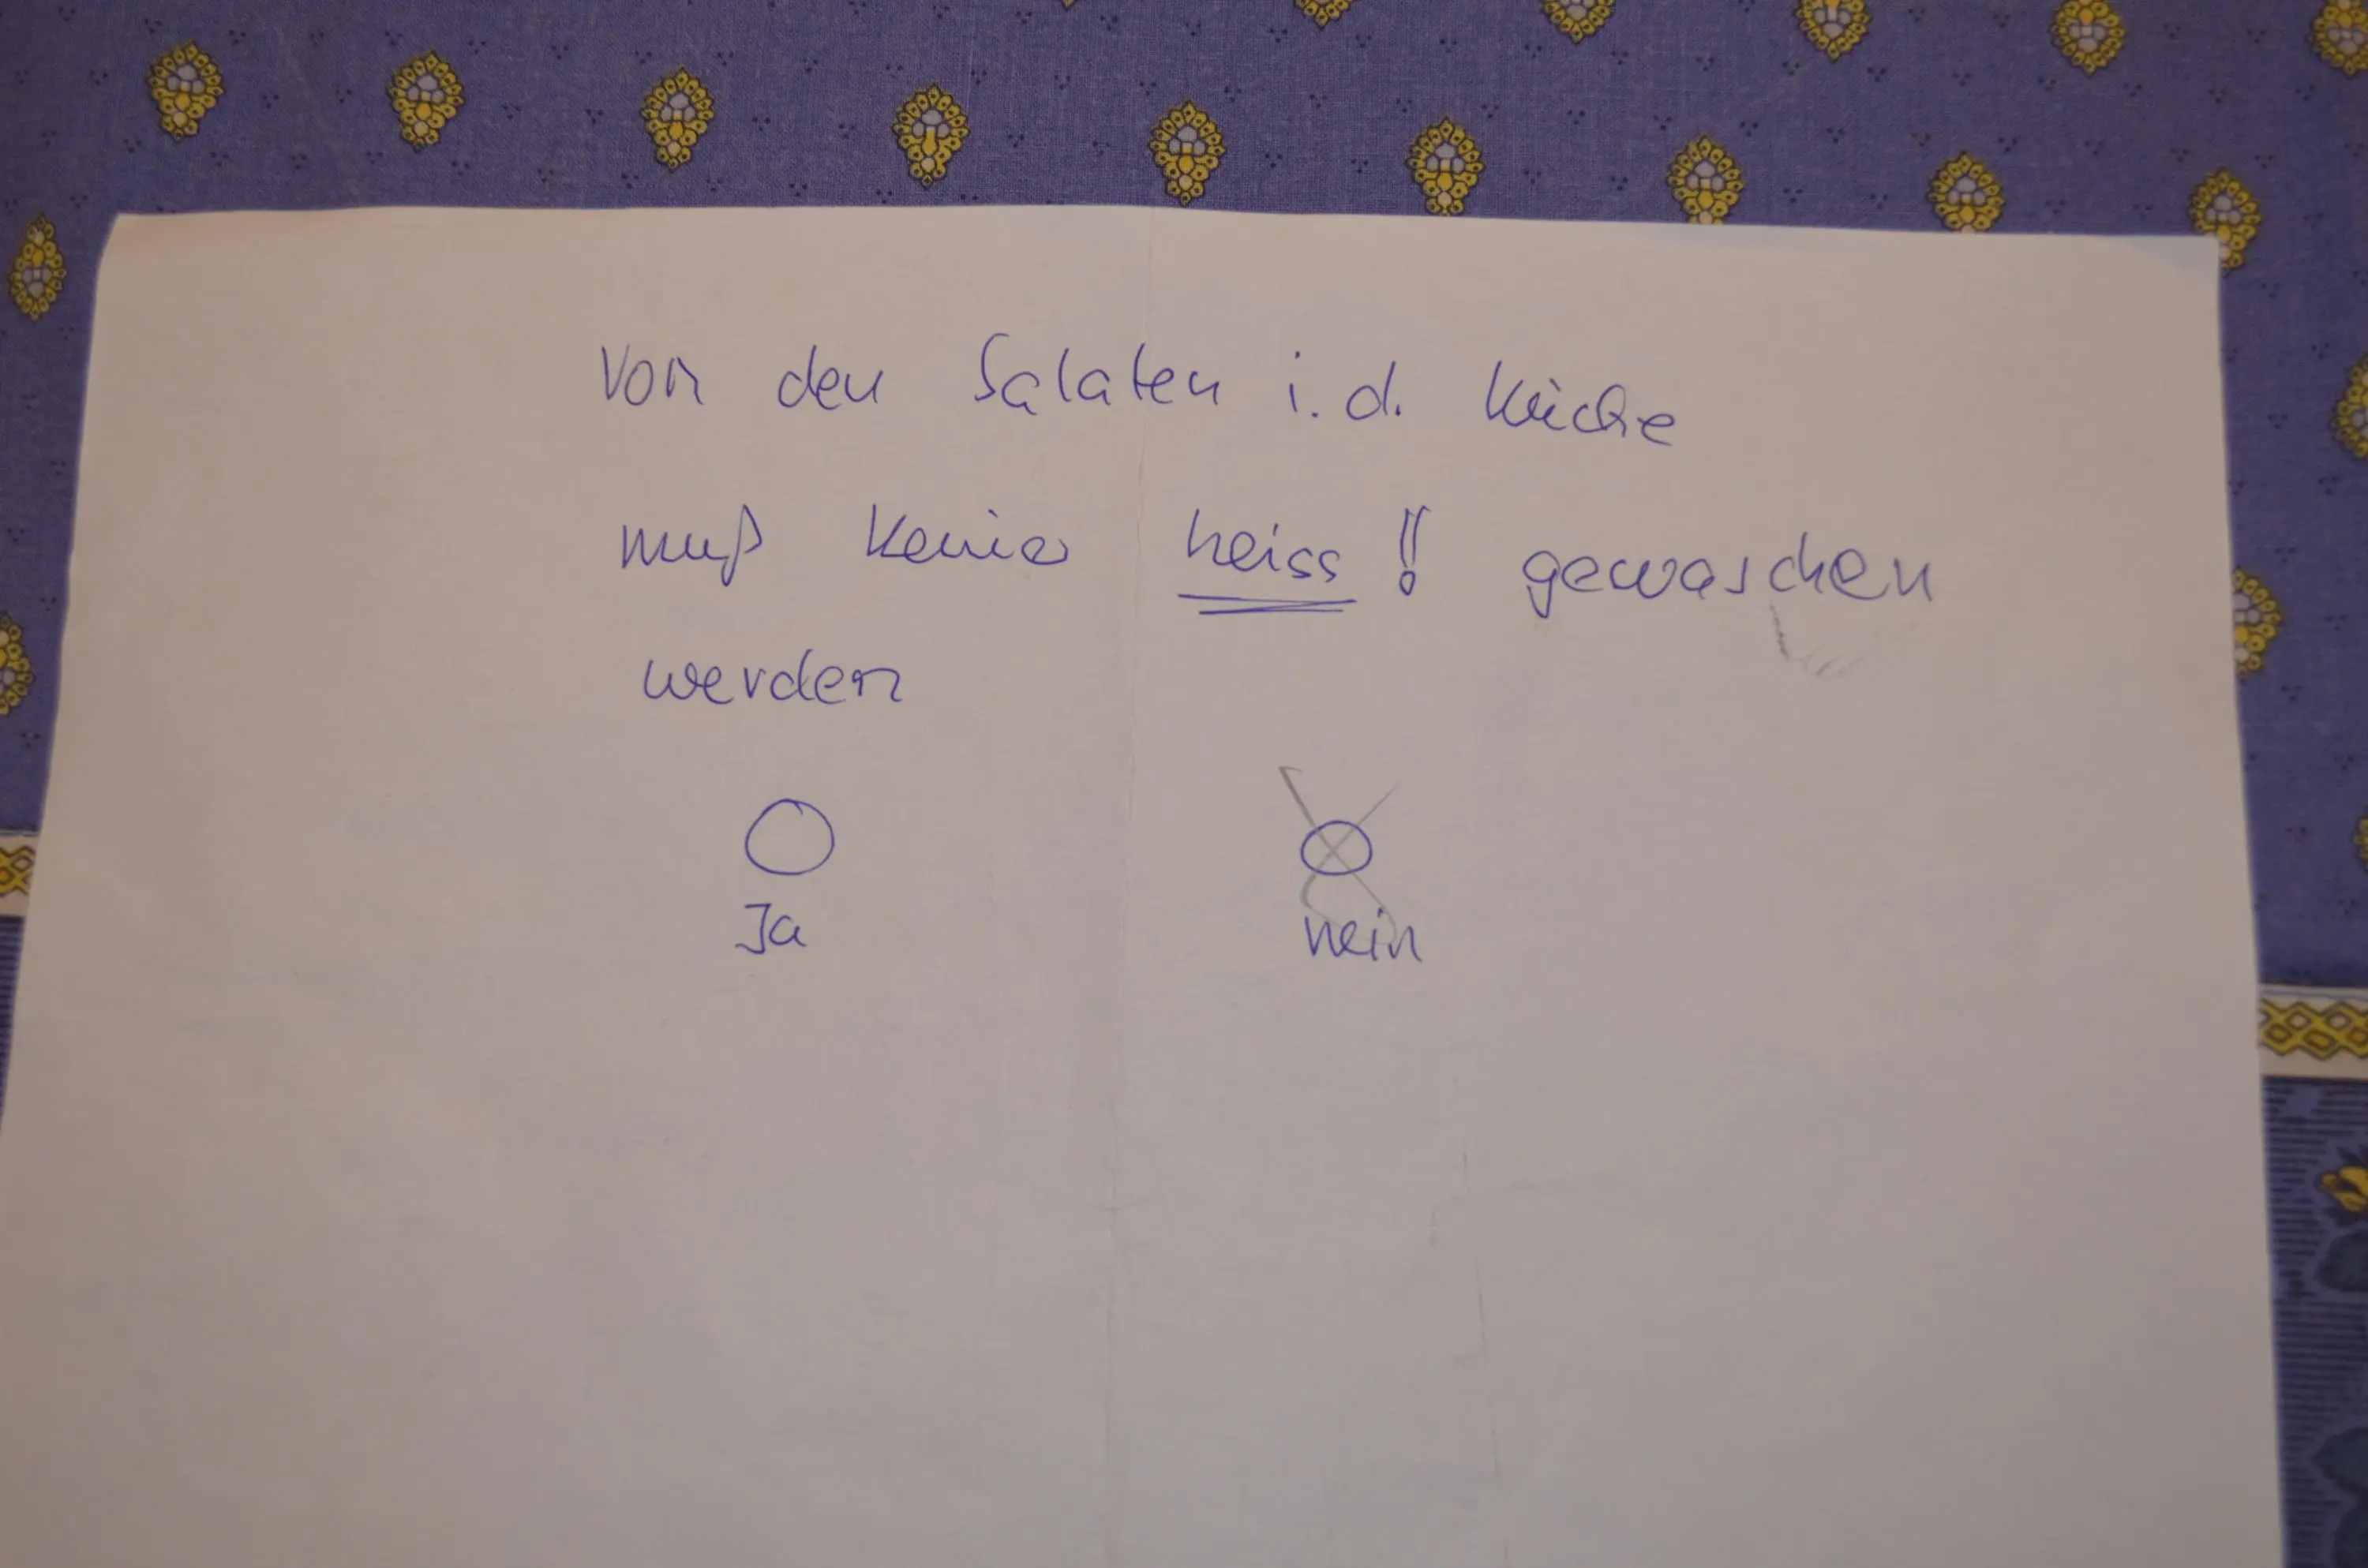 Von den Salaten i.d. Küche
muß keiner heiss!! gewaschen
werden
Ja nein